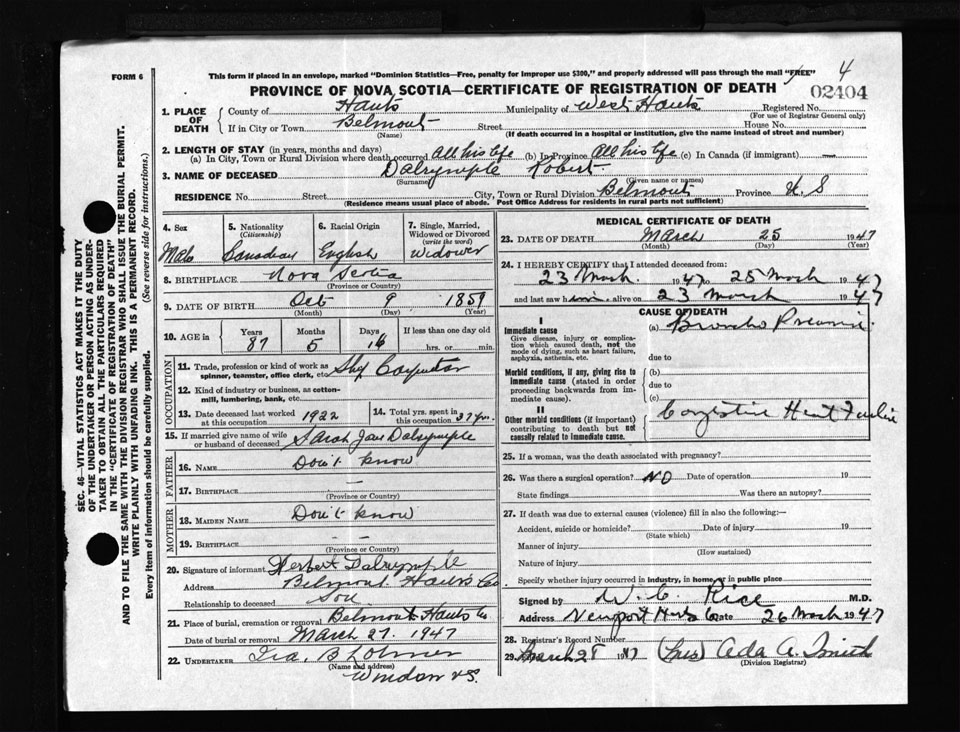 FORM 6
This form if placed in an envelope, marked "Dominion Statistics—Free, penalty for improper use $300," and properly addressed will pass through the mail "FREE" 4
PROVINCE OF NOVA SCOTIA—CERTIFICATE OF REGISTRATION OF DEATH 02404
SEC. 46—VITAL STATISTICS ACT MAKES IT THE DUTY
OF THE UNDERTAKER OR PERSON ACTING AS UNDER-
TAKER TO OBTAIN ALL THE PARTICULARS REQUIRED
IN THE "CERTIFICATE OF REGISTRATION OF DEATH"
AND TO FILE THE SAME WITH THE DIVISION REGISTRAR WHO SHALL ISSUE THE BURIAL PERMIT.
WRITE PLAINLY WITH UNFADING INK. THIS IS A PERMANENT RECORD.
Every item of information should be carefully supplied. (See reverse side for instructions.)
1. PLACE OF DEATH
County of Hants Municipality of West Hants Registered No.
(For use of Registrar General only)
If in City or Town Belmont Street House No.
(Name) (If death occurred in a hospital or institution, give the name instead of street and number)
2. LENGTH OF STAY (in years, months and days)
(a) In City, Town or Rural Division where death occurred All his life (b) In Province All his life (c) In Canada (if immigrant) —
3. NAME OF DECEASED Dalrymple Robert
(Surname) (Given name or names)
RESIDENCE No. Street City, Town or Rural Division Belmont Province N S
(Residence means usual place of abode. Post Office Address for residents in rural parts not sufficient)
4. Sex Male
5. Nationality (Citizenship) Canadian
6. Racial Origin English
7. Single, Married, Widowed or Divorced (write the word) Widower
8. BIRTHPLACE Nova Scotia
(Province or Country)
9. DATE OF BIRTH Oct 9 1859
(Month) (Day) (Year)
10. AGE in Years 87 Months 5 Days 16 If less than one day old
hrs. or min.
OCCUPATION
11. Trade, profession or kind of work as spinner, teamster, office clerk, etc. Ship Carpenter
12. Kind of industry or business, as cotton-mill, lumbering, bank, etc.
13. Date deceased last worked at this occupation 1922
14. Total yrs. spent in this occupation 37 yrs.
15. If married give name of wife or husband of deceased Sarah Jane Dalrymple
FATHER
16. NAME Don't know
17. BIRTHPLACE —
(Province or Country)
MOTHER
18. MAIDEN NAME Don't know
19. BIRTHPLACE - -
(Province or Country)
20. Signature of informant Herbert Dalrymple
Address Belmont Hants Co
Relationship to deceased Son
21. Place of burial, cremation or removal Belmont Hants Co
Date of burial or removal March 27. 1947
22. UNDERTAKER Ira. B
(Name and address)
Windsor N.S.
MEDICAL CERTIFICATE OF DEATH
23. DATE OF DEATH March 25 1947
(Month) (Day) (Year)
24. I HEREBY CERTIFY that I attended deceased from:
23 March 1947 to 25 March 1947
and last saw him alive on 23 March 1947
CAUSE OF DEATH
I
Immediate cause (a) Broncho Pneumonia.
Give disease, injury or complication which caused death, not the mode of dying, such as heart failure, asphyxia, asthenia, etc.
due to
Morbid conditions, if any, giving rise to immediate cause (stated in order proceeding backwards from immediate cause).
(b)
due to
(c)
II
Other morbid conditions (if important) contributing to death but not causally related to immediate cause. Congestive Heart Failure
25. If a woman, was the death associated with pregnancy?
26. Was there a surgical operation? NO Date of operation 19
State findings Was there an autopsy?
27. If death was due to external causes (violence) fill in also the following:—
Accident, suicide or homicide? Date of injury 19
(State which)
Manner of injury
(How sustained)
Nature of injury
Specify whether injury occurred in industry, in home or in public place
Signed by W. C. Rice M.D.
Address Newport Hants Co Date 26 March 1947
28. Registrar's Record Number
29. March 28 1947 (Mrs) Ada A. Smith
(Division Registrar)